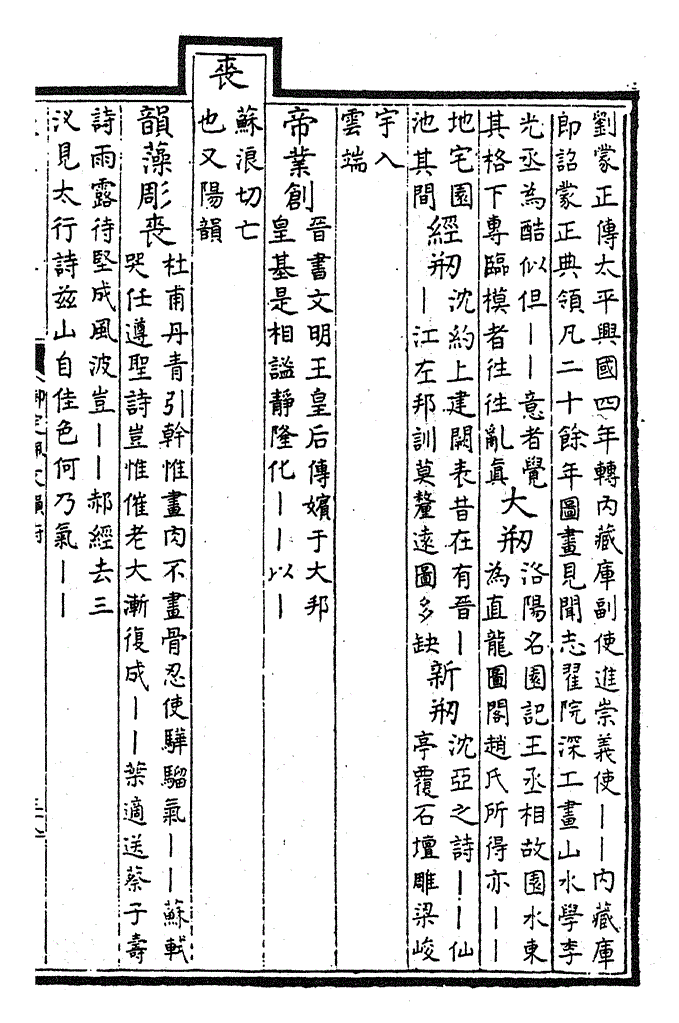 劉蒙正傳太平興國四年轉内藏庫副使進崇義使丨丨内藏庫
即詔蒙正典領凡二十餘年圖畫見聞志翟院深工畫山水學李
光丞為酷似但丨丨意者覺
其格下專臨模者往往亂真
大剏
洛陽名園記王丞相故園水東
為直龍圖閣趙氏所得亦丨丨
地宅園
池其間
經剏
沈約上建闕表昔在有晉丨
丨江左邦訓莫釐遠圖多缺
新剏
沈亞之詩丨丨仙
亭覆石壇雕梁峻
宇入
雲端
帝業創
晉書文明王皇后傳嬪于大邦
皇基是相謐靜隆化丨丨以丨
喪
蘇浪切亡
也又陽韻
韻藻彫喪
杜甫丹青引幹惟畫肉不畫骨忍使驊騮氣丨丨蘇軾
哭任遵聖詩豈惟催老大漸復成丨丨葉適送蔡子壽
詩雨露待堅成風波豈丨丨郝經去三
汊見太行詩兹山自佳色何乃氣丨丨